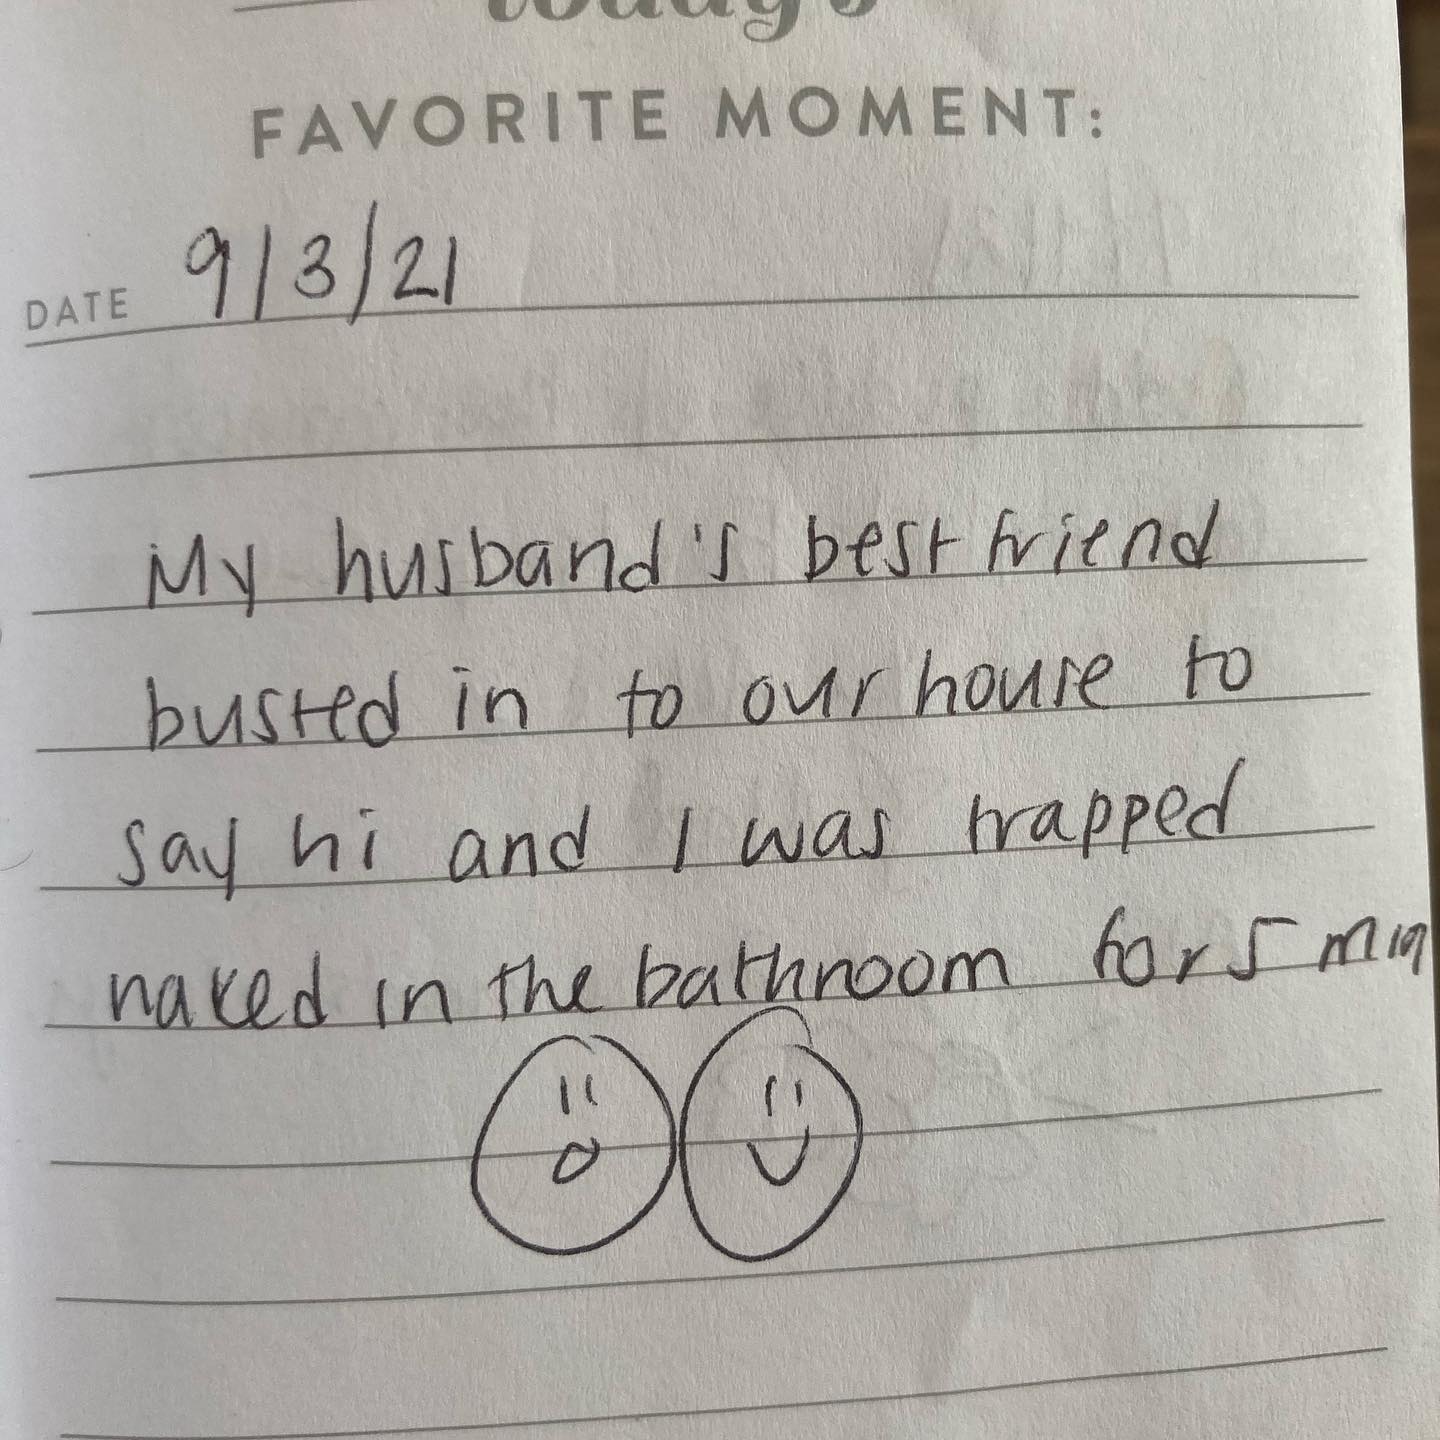 today's
FAVORITE MOMENT:
DATE 9/3/21
My husband's best friend
busted in to our house to
say hi and I was trapped
naked in the bathroom for 5 min